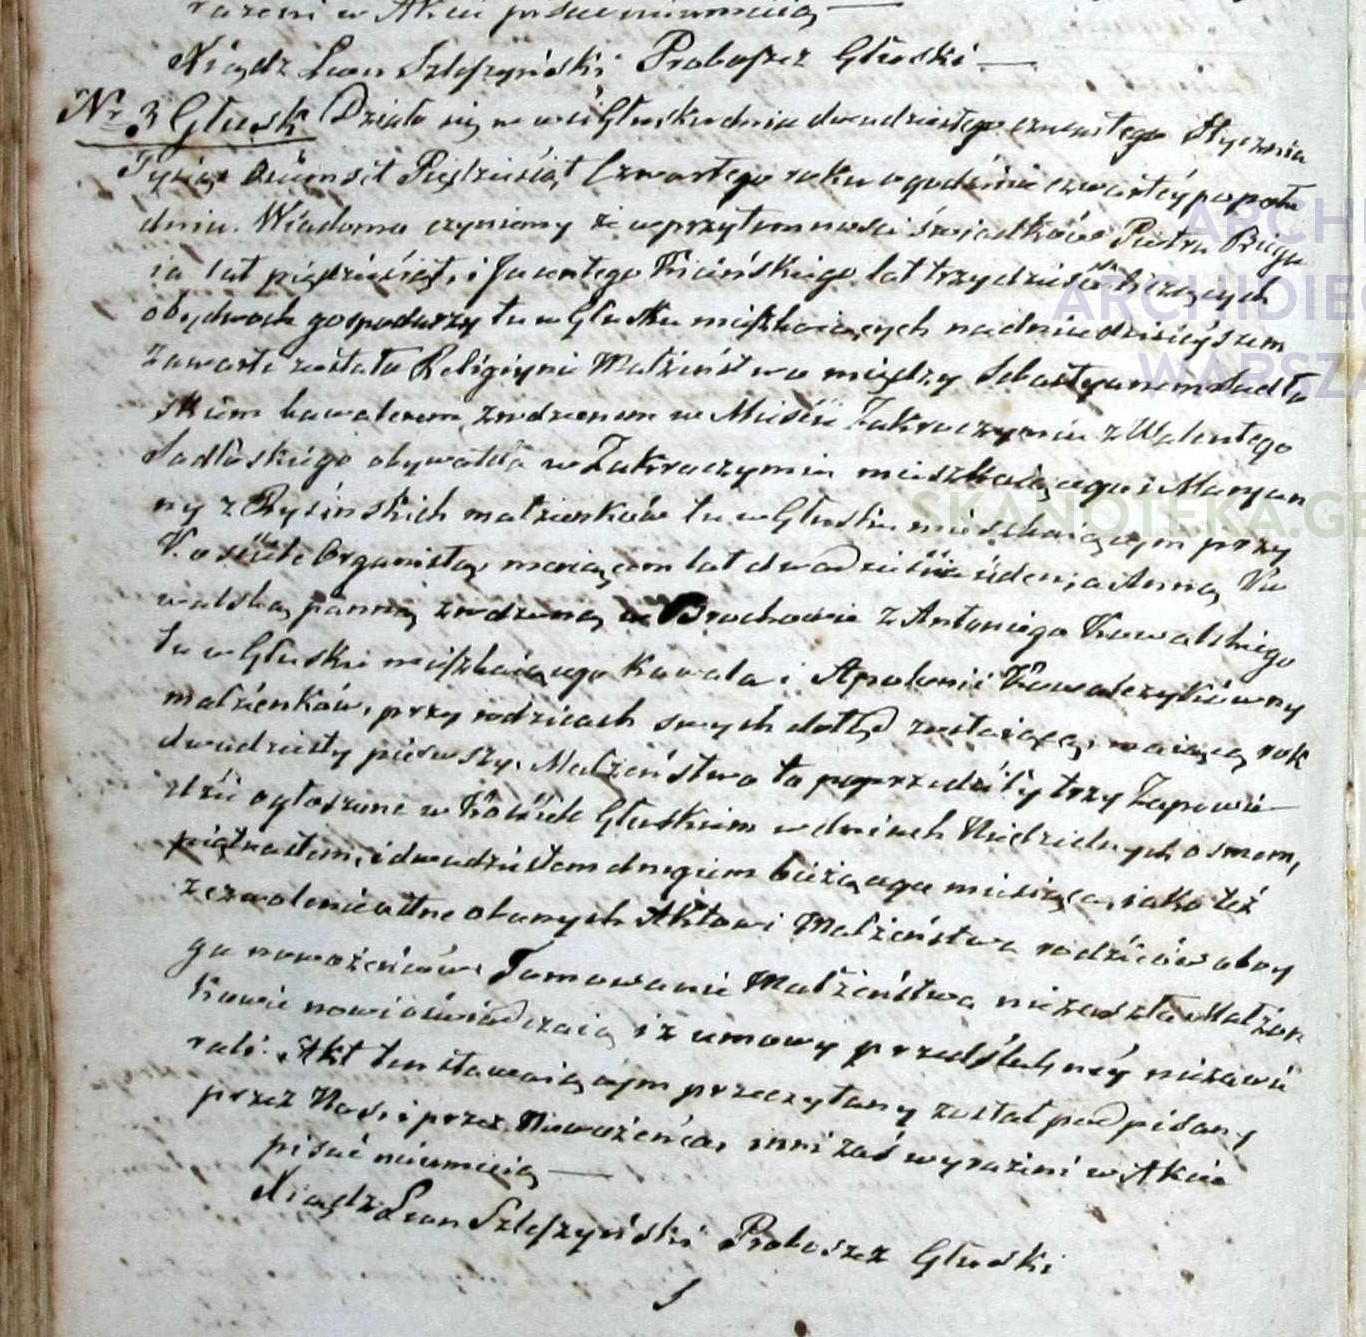 razeni w Akcie pisać nieumieią —
Xiądz Leon Szlepszyński Proboszcz Głuski —
Nr 3 Głusk Działo się we wsi Głusku dnia dwudziestego czwartego Stycznia
Tysiąc Ośmset Pięćdziesiąt Czwartego roku o godzinie czwartéy popołu
dniu. Wiadomo czyniemy że w przytomności świadków Piotra
lat pięćdziesiąt, i lat trzydzieści liczących
obydwóch gospodarzy tu w Głusku mieszkaiących na dniu dzisieyszem
zawarte zostało Religiyne Małżeństwo między Sebastyanem Sadło
skiem kawalerem zrodzonem w Mieście Zakroczymiu z Walentego
Sadłoskiego obywatela w Zakroczymiu mieszkaiącego i Maryan
ny z Rysińskich małżonków tu w Głusku mieszkaiącym przy
Kościele Organistą, maiącem lat dwadzieścia ieden, a Anną Ko
walską panną zrodzoną w Brochowie z Antoniego Kowalskiego
tu w Głusku mieszkaiącego Kowala i Apolonii Kowalczykówny
małżonków, przy rodzicach swych dotąd zostaiącą, maiącą rok
dwudziesty pierwszy. Małżeństwo to poprzedziły trzy Zapowie
dzie ogłoszone w Kościele Głuskim w dniach Niedzielnych osmem,
piętnastem, i dwudziestem drugiem bieżącego miesiąca, iako też
zezwolenie ustne obecnych Aktowi Małżeństwa rodziców oboy
ga nowożeńców. Tamowanie Małżeństwa nie zaszło. Małżon
kowie nowi oświadczaią iż umowy przedślubnéy niezawie
rali. Akt ten stawaiącym przeczytany został podpisany
przez Nas i przez Nowożeńca, inni zaś wyrażeni w Akcie
pisać nieumieią —
Xiądz Leon Szlepszyński Proboszcz Głuski
ARCHI
ARCHIDIE
WARSZA
SKANOTEKA.GE